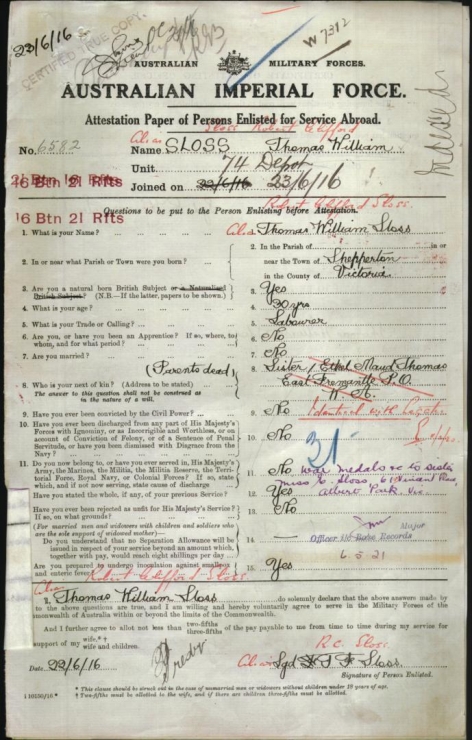 23/6/16
W 7312
CERTIFIED TRUE COPY
AUSTRALIAN MILITARY FORCES.
AUSTRALIAN IMPERIAL FORCE.
Attestation Paper of Persons Enlisted for Service Abroad.
Alias Sloss Robert Clifford
No. 6582 Name SLOSS Thomas William
Unit 74 Depot
16 Btn 21 Rfts Joined on 22/6/16 23/6/16
16 Btn 21 Rfts
Robert Clifford Sloss
Questions to be put to the Person Enlisting before Attestation.
1. What is your Name? 1. Alias Thomas William Sloss
2. In or near what Parish or Town were you born? 2. In the Parish of in or
near the Town of Shepperton
in the County of Victoria
3. Are you a natural born British Subject or a Naturalised British Subject? (N.B.—If the latter, papers to be shown.) 3. Yes
4. What is your age? 4. 30 yrs
5. What is your Trade or Calling? 5. Labourer
6. Are you, or have you been an Apprentice? If so, where, to whom, and for what period? 6. No
7. Are you married? 7. No
(Parents dead)
8. Who is your next of kin? (Address to be stated) 8. Sister / Ethel Maud Thomas
The answer to this question shall not be construed as in the nature of a will. East Fremantle P.O.
W.A.
9. Have you ever been convicted by the Civil Power? 9. No
Identical with
10. Have you ever been discharged from any part of His Majesty's Forces with Ignominy, or as Incorrigible and Worthless, or on account of Conviction of Felony, or of a Sentence of Penal Servitude, or have you been Dismissed with Disgrace from the Navy? 10. No
31
11. Do you now belong to, or have you ever served in, His Majesty's Army, the Marines, the Militia, the Militia Reserve, the Territorial Force, Royal Navy, or Colonial Forces? If so, state which, and if not now serving, state cause of discharge 11. No
War medals &c to sister
Miss E. Sloss 6
Albert Park Vic
Have you stated the whole, if any, of your previous Service? 12. Yes
Have you ever been rejected as unfit for His Majesty's Service? If so, on what grounds? 13. No
(For married men and widowers with children and soldiers who are the sole support of widowed mother)— 14. —
Do you understand that no Separation Allowance will be issued in respect of your service beyond an amount which, together with pay, would reach eight shillings per day
Major
Officer i/c Base Records
6.5.21
Are you prepared to undergo inoculation against smallpox and enteric fever? 15. Yes
Alias Robert Clifford Sloss
I, Thomas William Sloss do solemnly declare that the above answers made by me to the above questions are true, and I am willing and hereby voluntarily agree to serve in the Military Forces of the Commonwealth of Australia within or beyond the limits of the Commonwealth.
And I further agree to allot not less than two-fifths three-fifths of the pay payable to me from time to time during my service for support of my wife.*† wife and children.
R.C. Sloss
Date 22/6/16
Alias Sgd Sloss
Signature of Person Enlisted.
* This clause should be struck out in the case of unmarried men or widowers without children under 18 years of age.
† Two-fifths must be allotted to the wife, and if there are children three-fifths must be allotted.